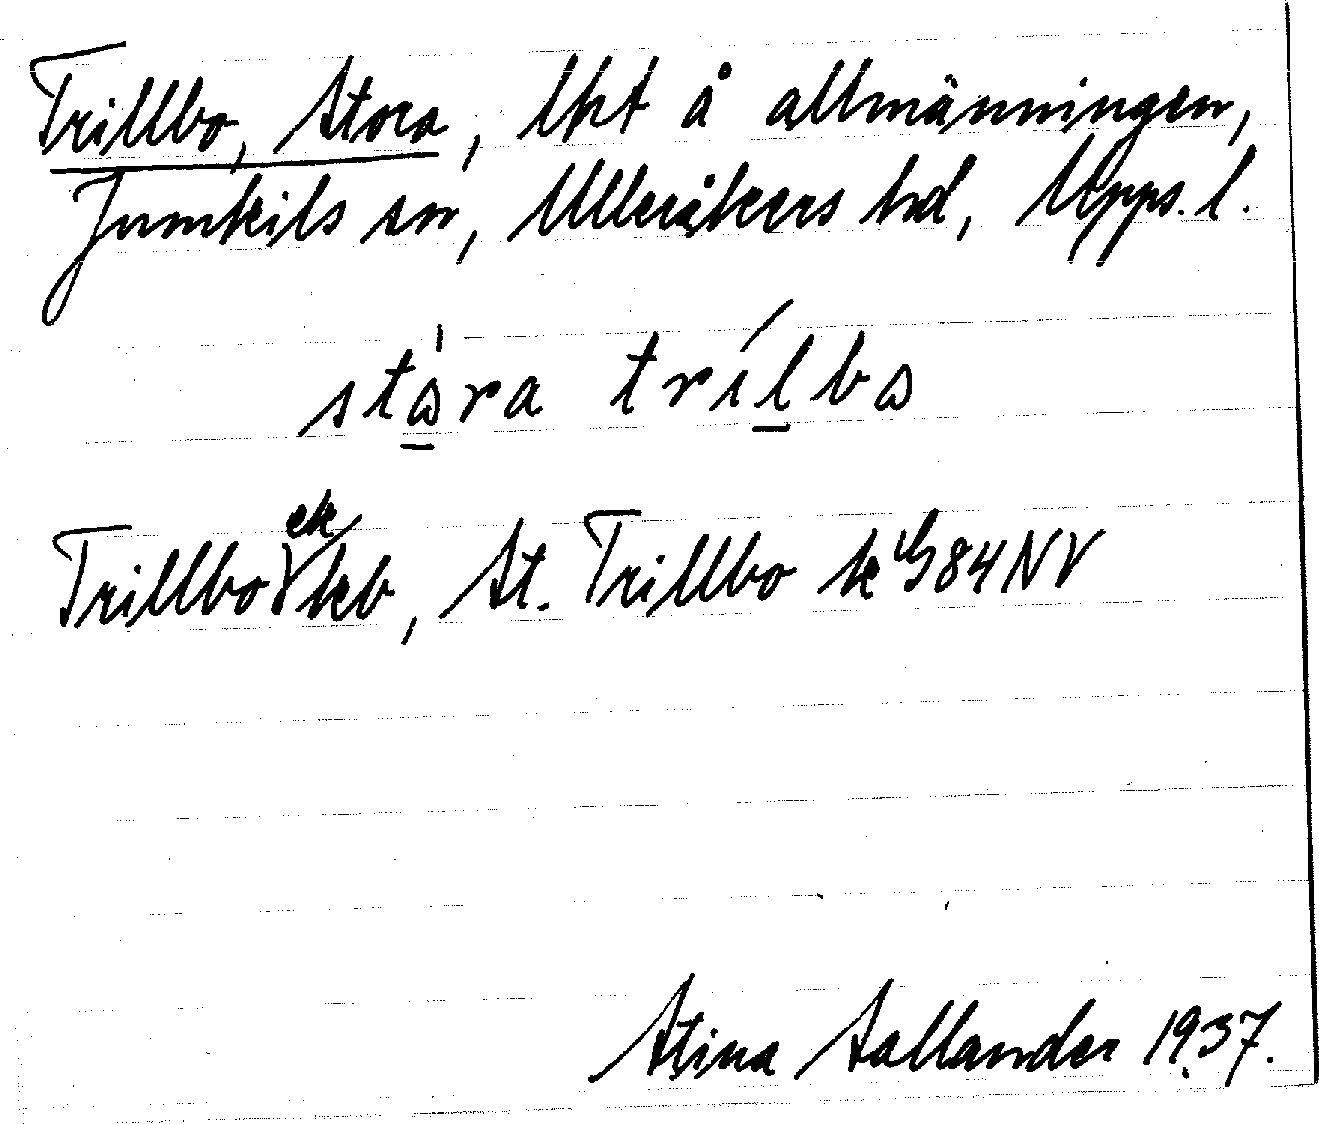 Trillbo, Stora, lht å allmänningen,
Jumkils sn, Ulleråkers hd, Upps. l.
stɷ̲̍ra tríl̲bɷ
Trillbo ek keb, St. Trillbo k G84NV
Stina Sallander 1937.